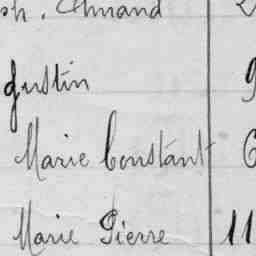 ph. Armand 2
gustin 9
Marie Constant 6
Marie Pierre 11